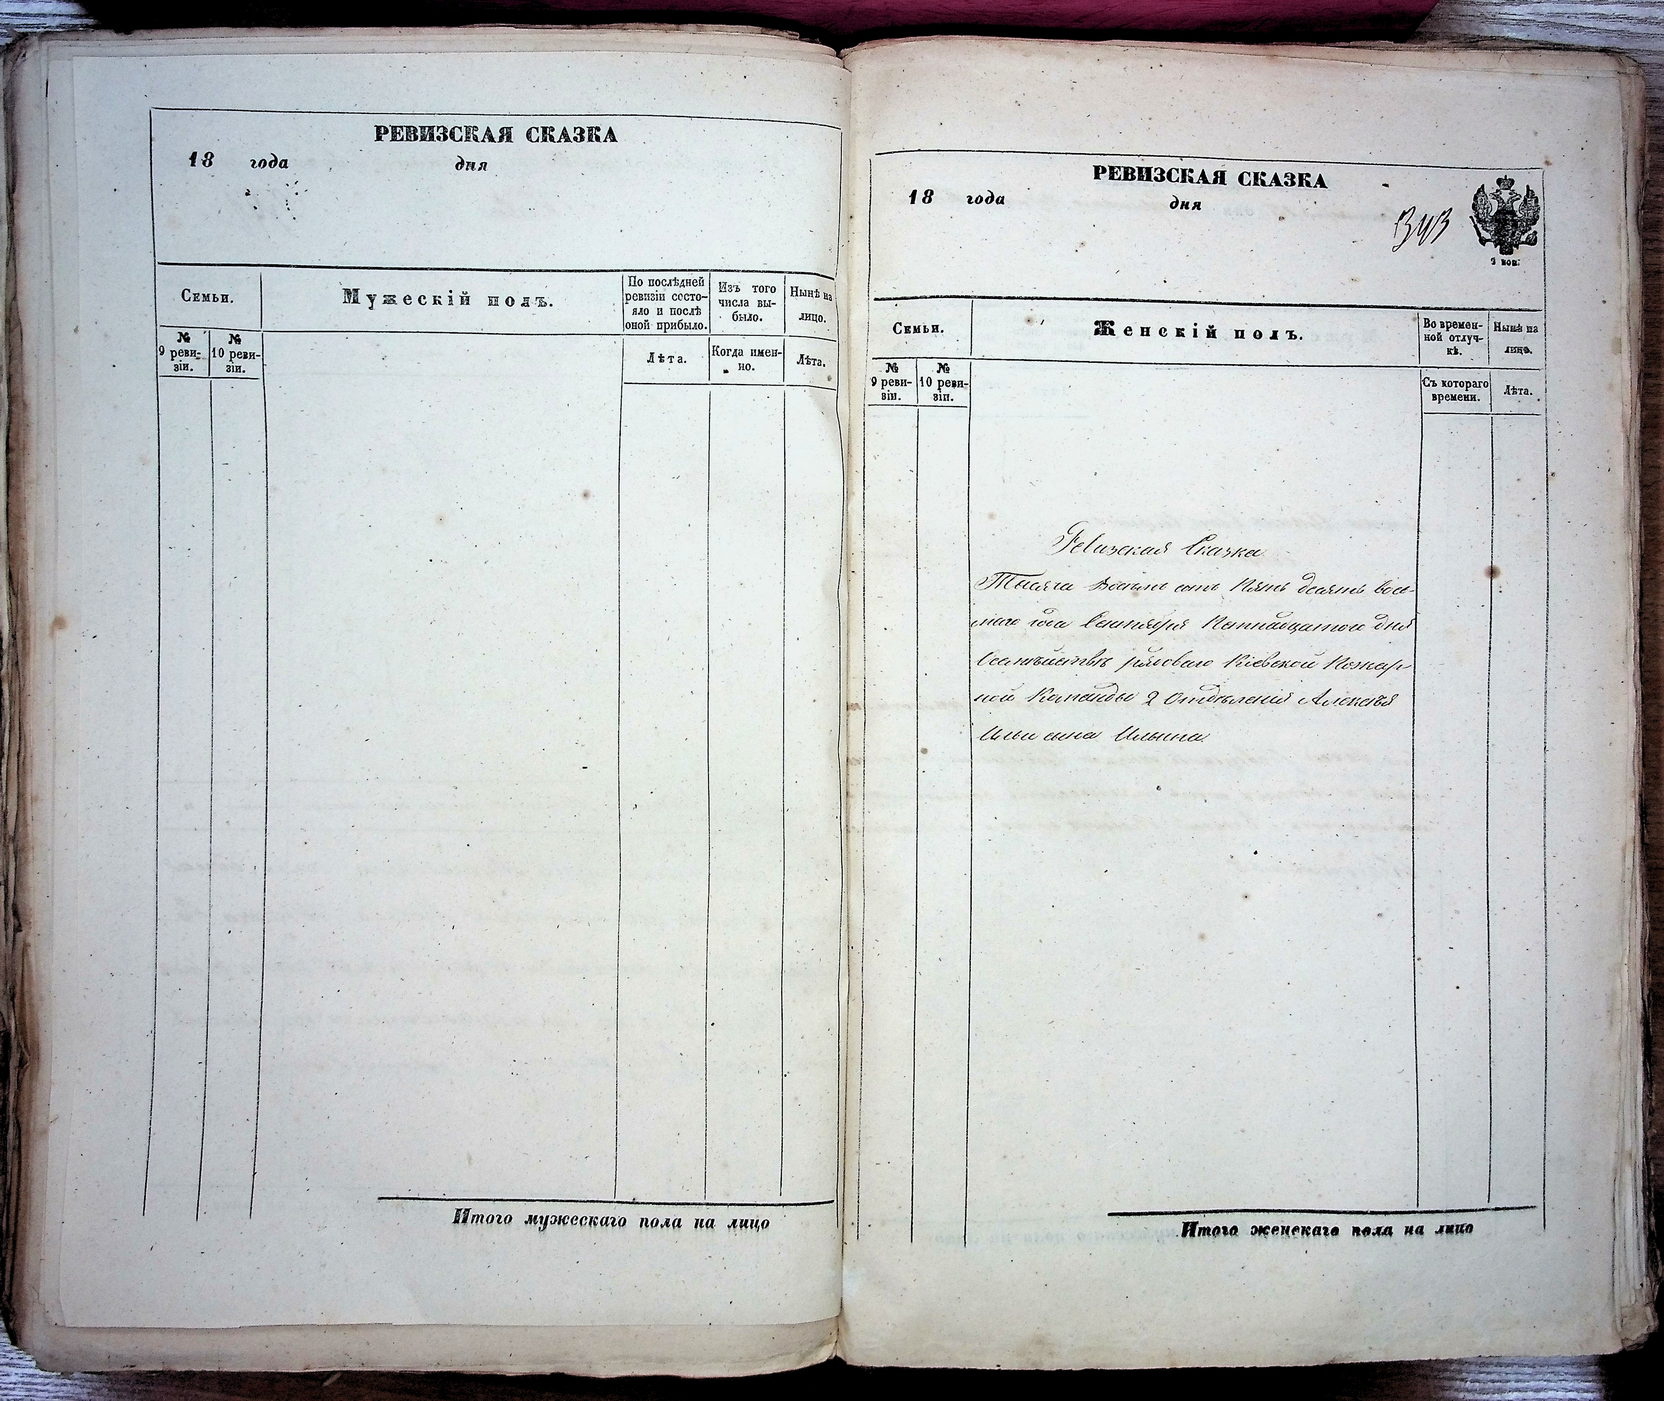 РЕВИЗСКАЯ СКАЗКА
18 года дня
Семьи.
Мужескій полъ.
По послѣдней
ревизіи состо-
яло и послѣ
оной прибыло.
Изъ того
числа вы-
было.
Нынѣ на
лицо.
№
9 реви-
зіи.
№
10 реви-
зіи.
Лѣта.
Когда имен-
но.
Лѣта.
Итого мужескаго пола на лицо
РЕВИЗСКАЯ СКАЗКА
18 года дня
2 коп.
Семьи.
Женскій полъ.
Во времен-
ной отлуч-
кѣ.
Нынѣ на
лицо.
№
9 реви-
зіи.
№
10 реви-
зіи.
Съ котораго
времени.
Лѣта.
Ревизская Сказка
Тысяча восемь сотъ Пять десятъ вось-
маго года Сентября Пятнадцатого дня
Семѣйствѣ рядоваго Кіевской Пожар-
ной Команды 2 Отдѣленія Алексѣя
Ильина
Итого женскаго пола на лицо